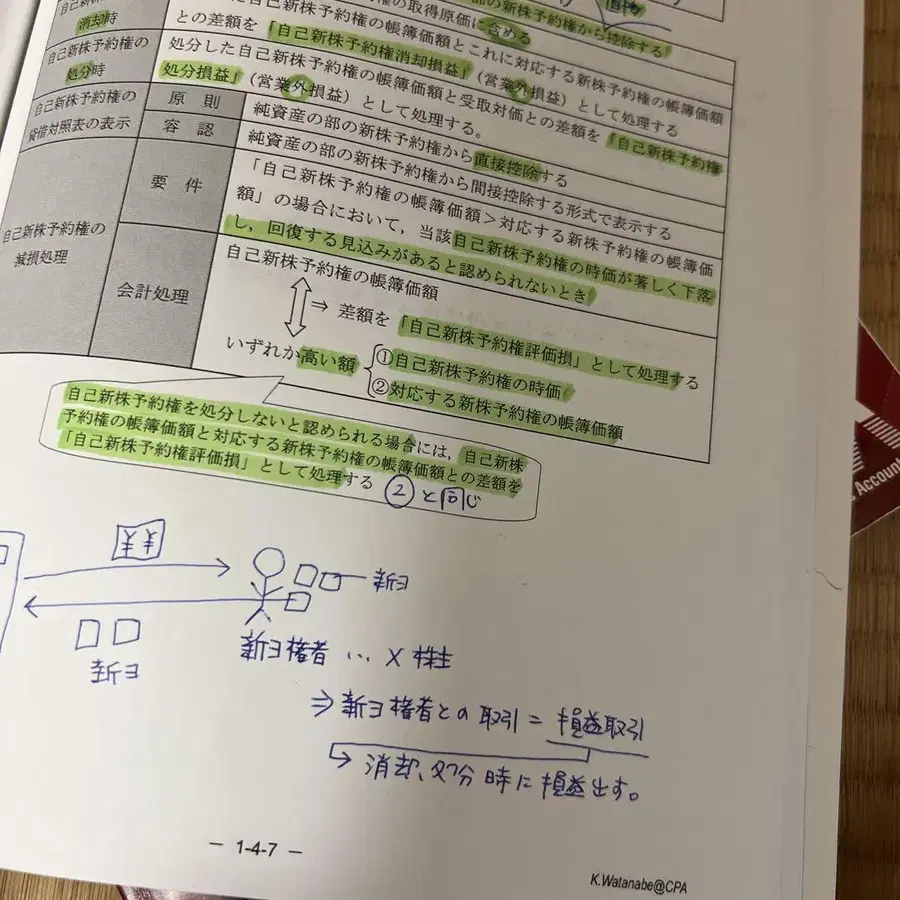 部の新株予約権から控除する
権の取得原価に含める
自己新株予約権の帳簿価額とこれに対応する新株予約権の帳簿価額
消却時
との差額を「自己新株予約権消却損益」(営業外損益)として処理する
自己新株予約権の
処分時
処分した自己新株予約権の帳簿価額と受取対価との差額を「自己新株予約権
処分損益」(営業外損益)として処理する。
自己新株予約権の
貸借対照表の表示
原則
純資産の部の新株予約権から直接控除する
容認
純資産の部の新株予約権から間接控除する形式で表示する
自己新株予約権の
減損処理
要件
「自己新株予約権の帳簿価額>対応する新株予約権の帳簿価
額」の場合において,当該自己新株予約権の時価が著しく下落
し,回復する見込みがあると認められないとき
会計処理
自己新株予約権の帳簿価額
⇒ 差額を「自己新株予約権評価損」として処理する
いずれか高い額
①自己新株予約権の時価
②対応する新株予約権の帳簿価額
自己新株予約権を処分しないと認められる場合には,自己新株
予約権の帳簿価額と対応する新株予約権の帳簿価額との差額を
「自己新株予約権評価損」として処理する ②と同じ
¥¥
新ヨ
新ヨ
新ヨ権者 … × 株主
⇒ 新ヨ権者との取引 = 損益取引
↳ 消却、処分時に損益出す。
— 1-4-7 —
K.Watanabe@CPA
Account